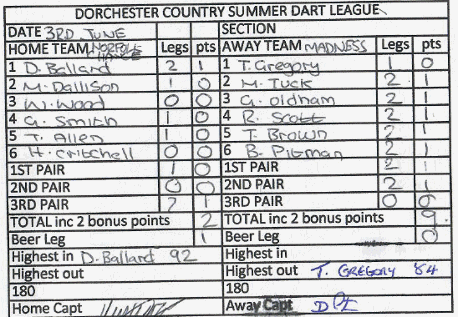 DORCHESTER COUNTRY SUMMER DART LEAGUE
DATE 3RD JUNE SECTION
HOME TEAM NORFOLK Legs pts AWAY TEAM MADNESS Legs pts
1 D. Ballard 2 1 1 T. Gregory 1 0
2 M. Dallison 1 0 2 M. Tuck 2 1
3 W. Wood 0 0 3 G. Oldham 2 1
4 G. Smith 1 0 4 R. Scott 2 1
5 T. Allen 1 0 5 T. Brown 2 1
6 H. Critchell 0 0 6 B. Pitman 2 1
1ST PAIR 1 0 1ST PAIR 2 1
2ND PAIR 0 0 2ND PAIR 2 1
3RD PAIR 2 1 3RD PAIR 0 0
TOTAL inc 2 bonus points 2 TOTAL inc 2 bonus points 9
Beer Leg 1 Beer Leg 0
Highest in D. Ballard 92 Highest in
Highest out Highest out T. GREGORY 84
180 180
Home Capt Away Capt